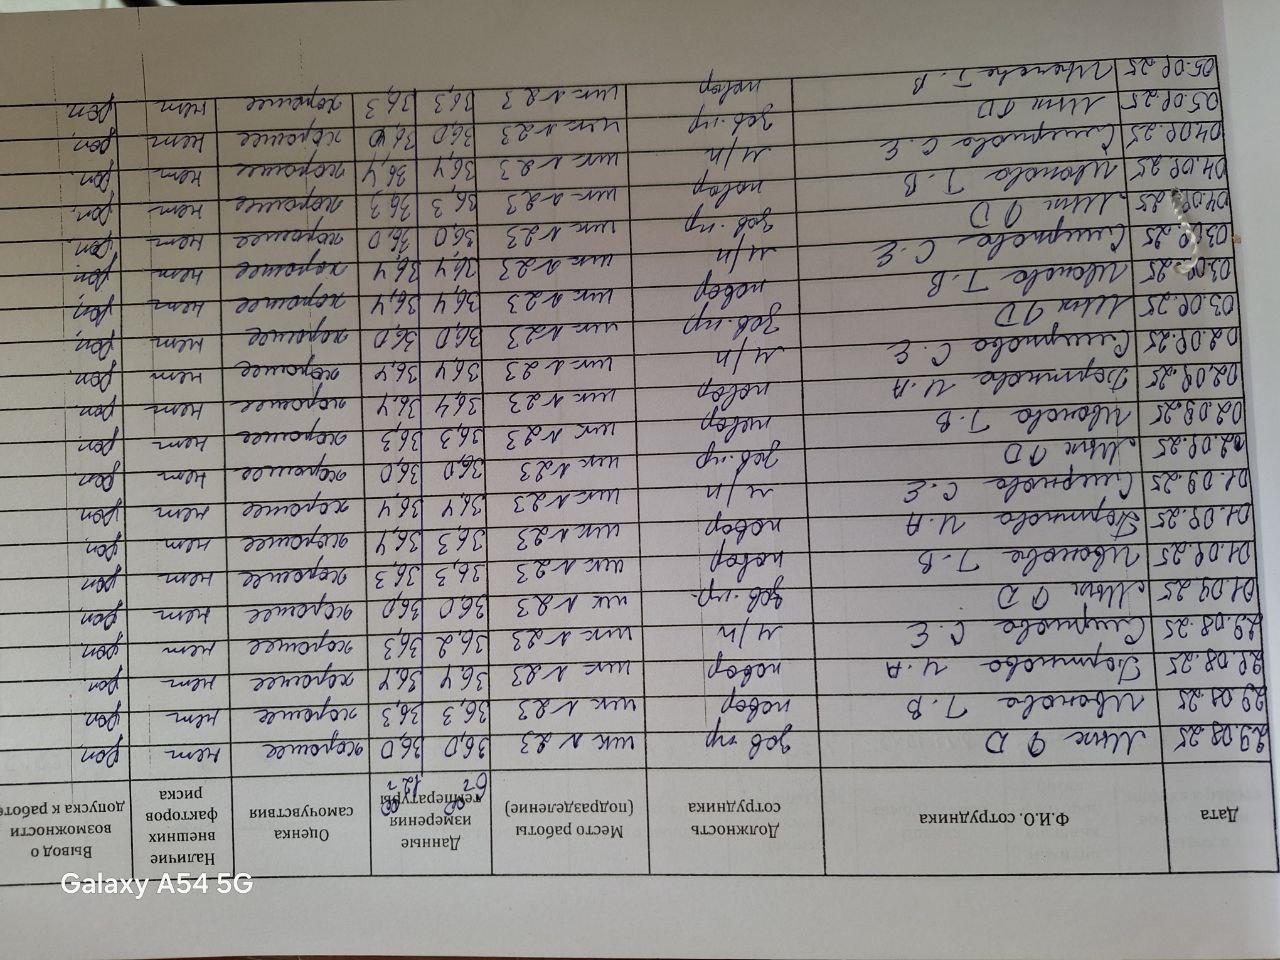 Дата Ф.И.О. сотрудника Должность сотрудника Место работы (подразделение) Данные измерения температуры Оценка самочувствия Наличие внешних факторов риска Вывод о возможности допуска к работе
29.08.25 зав пр шк N23 36,0 36,0 хорошее нет доп.
29.08.25 Иванова Т.В повар шк N23 36,3 36,3 хорошее нет доп
29.08.25 Портнова И.А повар шк N23 36,4 36,4 хорошее нет доп.
29.08.25 Смирнова С.Е м/п шк N23 36,2 36,3 хорошее нет доп.
01.09.25 зав.пр. шк N23 36,0 36,0 хорошее нет доп,
01.09.25 Иванова Т.В повар шк N23 36,3 36,3 хорошее нет доп
01.09.25 Портнова И.А повар шк N23 36,3 36,4 хорошее нет доп,
01.09.25 Смирнова С.Е м/п шк N23 36,4 36,4 хорошее нет доп
02.09.25 зав.пр шк N23 36,0 36,0 хорошее нет доп.
02.09.25 Иванова Т.В повар шк N23 36,3 36,3 хорошее нет доп.
02.09.25 Портнова И.А повар шк N23 36,4 36,4 хорошее нет доп
02.09.25 Смирнова С.Е м/п шк N23 36,4 36,4 хорошее нет доп.
03.09.25 зав.пр шк N23 36,0 36,0 хорошее нет доп,
03.09.25 Иванова Т.В повар шк N23 36,4 36,4 хорошее нет доп,
03.09.25 Смирнова С.Е м/п шк N23 36,4 36,4 хорошее нет доп
04.09.25 зав.пр шк N23 36,0 36,0 хорошее нет доп.
04.09.25 Иванова Т.В повар шк N23 36,3 36,3 хорошее нет доп,
04.09.25 Смирнова С.Е м/п шк N23 36,4 36,4 хорошее нет доп.
05.09.25 зав.пр шк N23 36,0 36,0 хорошее нет доп,
05.09.25 Иванова Т.В повар шк N23 36,3 36,3 хорошее нет доп.
Galaxy A54 5G